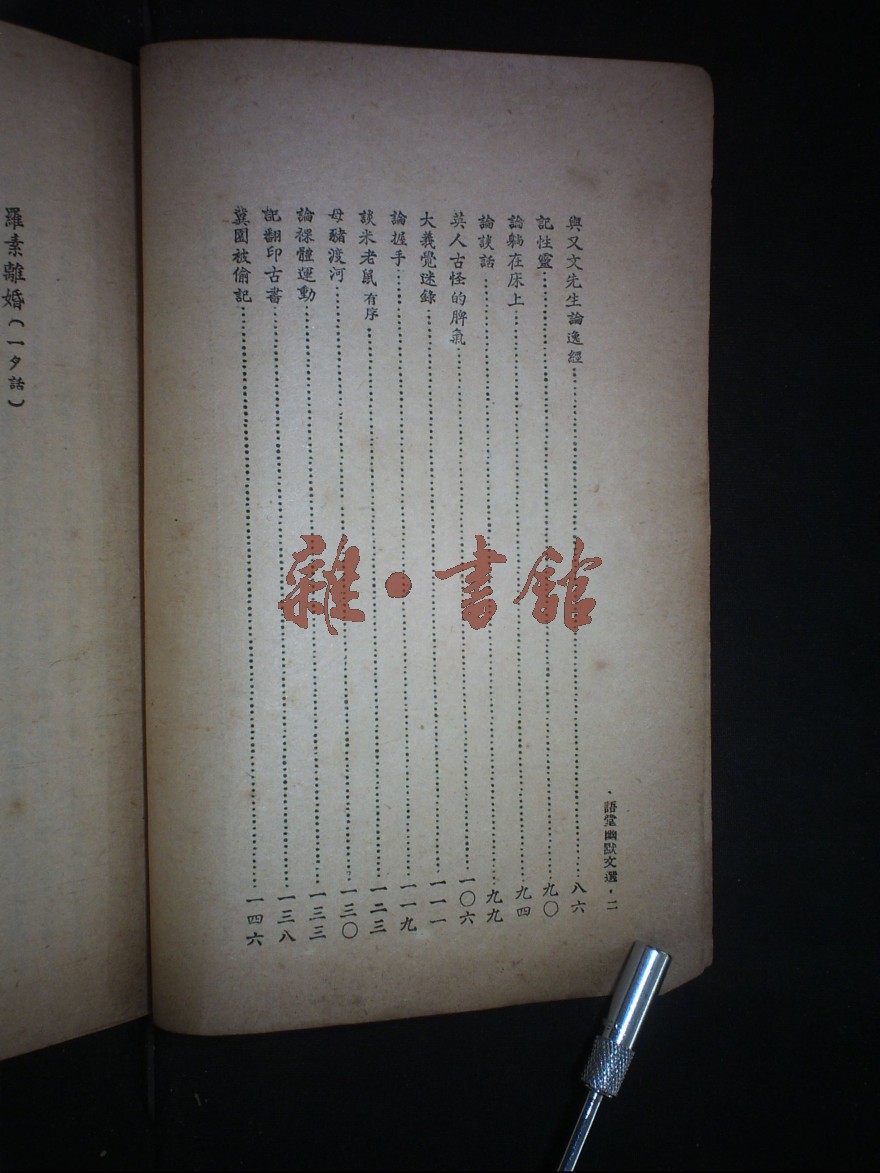 語堂幽默文選・二
與又文先生論逸經……八六
記性靈……九〇
論躺在床上……九四
論談話……九九
英人古怪的脾氣……一〇六
大義覺迷錄……一一一
論握手……一一九
談米老鼠有序……一二三
母豬渡河……一三〇
論裸體運動……一三三
記翻印古書……一三八
冀園被偷記……一四六
羅素離婚(一夕話)
雜・書館